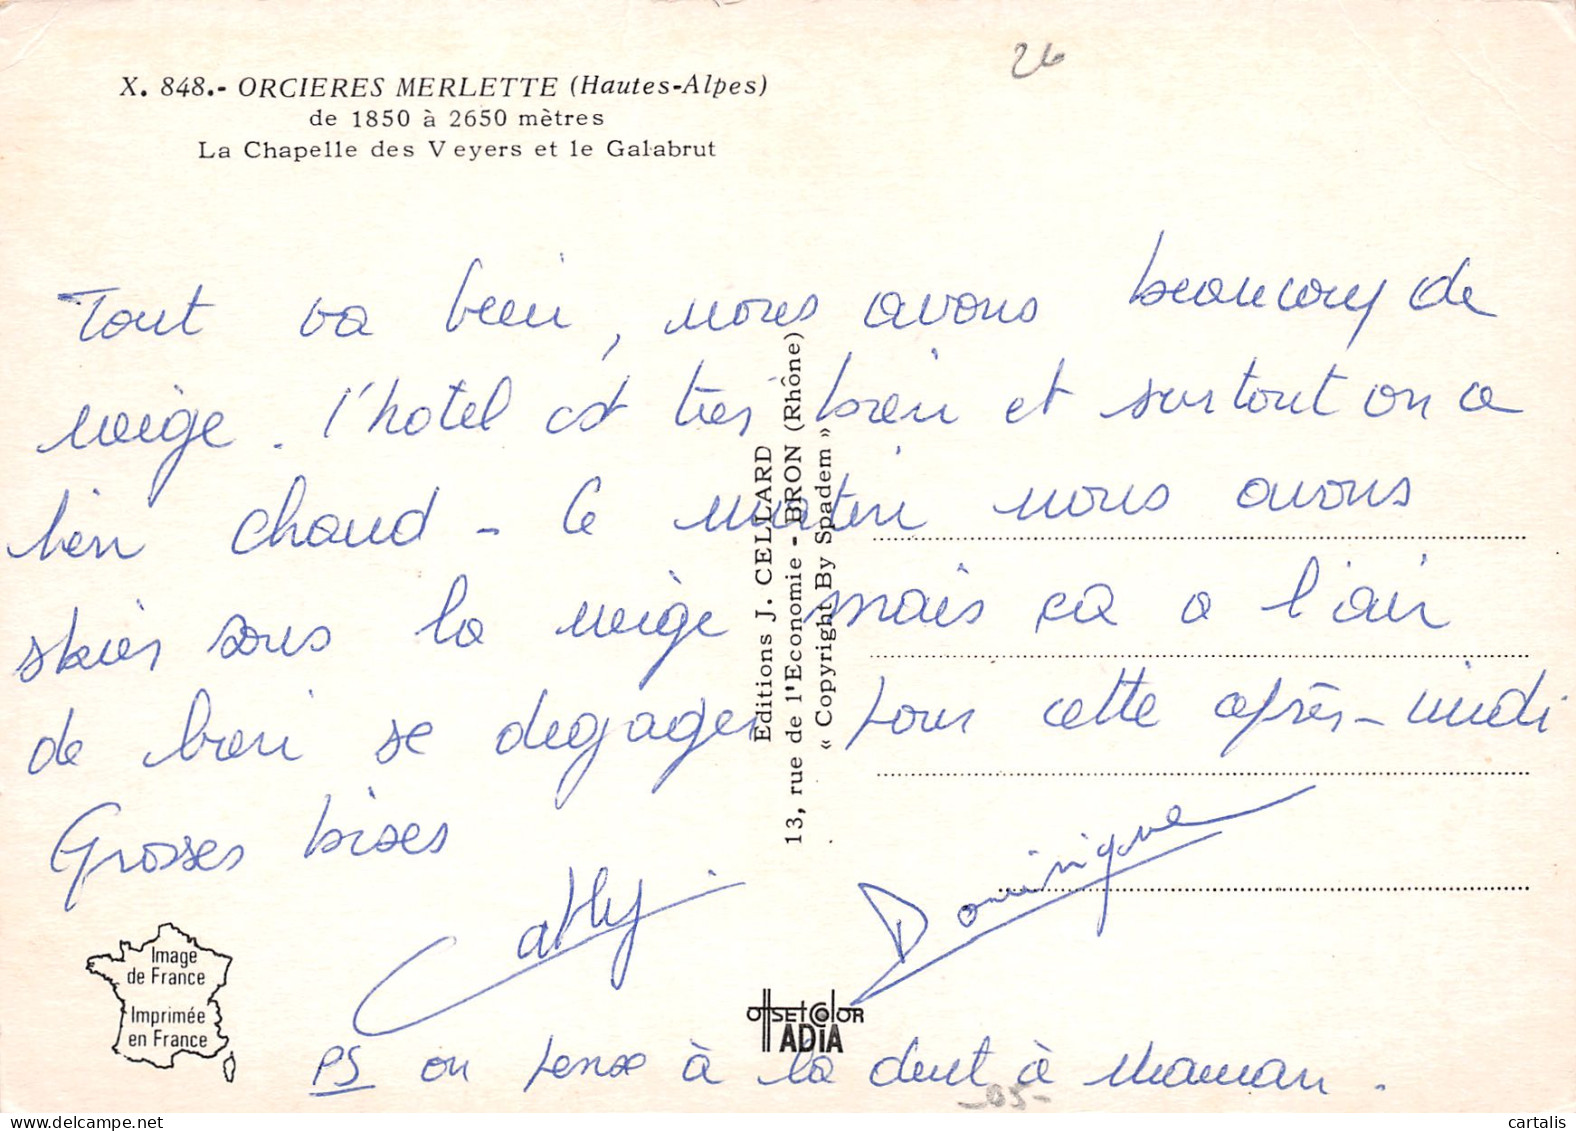 26
X. 848.- ORCIERES MERLETTE (Hautes-Alpes)
de 1850 à 2650 mètres
La Chapelle des Veyers et le Galabrut
Tout va bien, nous avons beaucoup de
neige. l'hotel est très bien et surtout on a
bien chaud - Ce matin nous avons
skiés sous la neige mais ça a l'air
de bien se degager pour cette après-midi
Grosses bises
Cathy
Dominique
PS on pense à la dent à Maman.
Editions J. CELLARD
13, rue de l'Economie - BRON (Rhône)
« Copyright By Spadem »
Image
de France
Imprimée
en France
OffSET COLOR
ADIA
-05-
cartalis